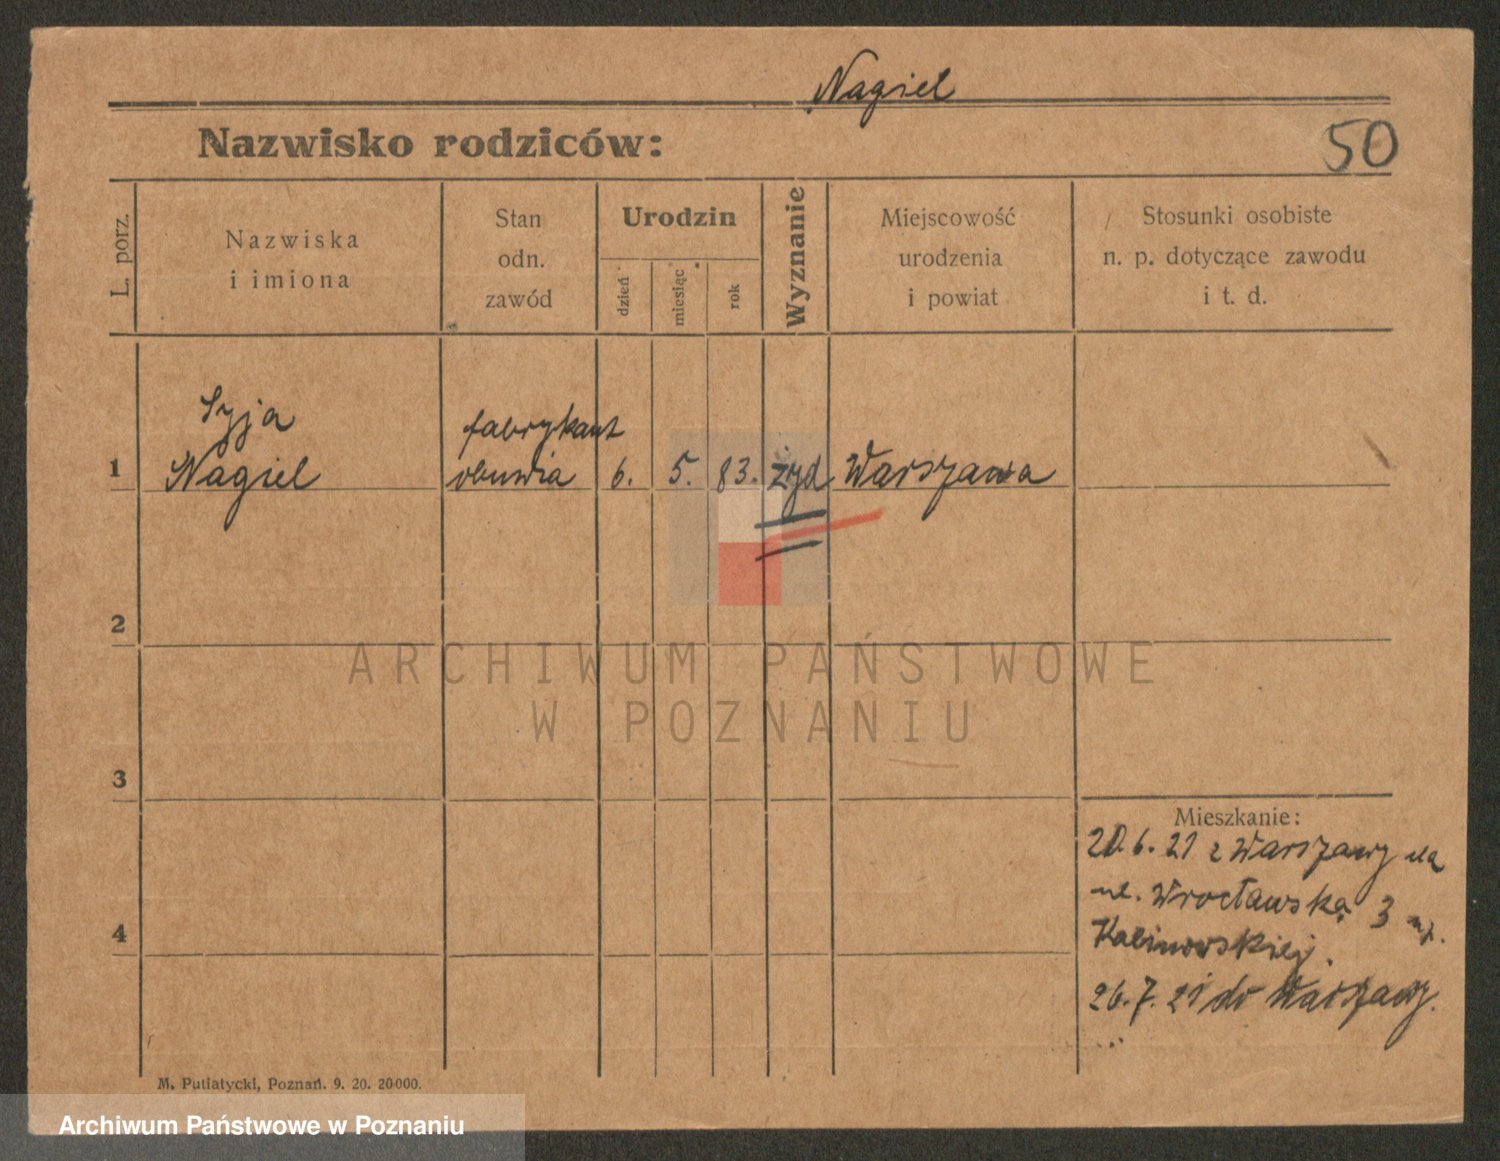 Nagiel
Nazwisko rodziców:
50
L. porz.
Nazwiska
i imiona
Stan
odn.
zawód
Urodzin
dzień
miesiąc
rok
Wyznanie
Miejscowość
urodzenia
i powiat
Stosunki osobiste
n. p. dotyczące zawodu
i t. d.
1
Syja
Nagiel
fabrykant
obuwia
6.
5.
83.
żyd
Warszawa
2
3
4
Mieszkanie:
20.6.21 z Warszawy na
ul. Wrocławską 3
Kalinowskiej.
26.7.21 do Warszawy.
M. Putiatycki, Poznań. 9. 20. 20000.
ARCHIWUM PAŃSTWOWE
W POZNANIU
Archiwum Państwowe w Poznaniu